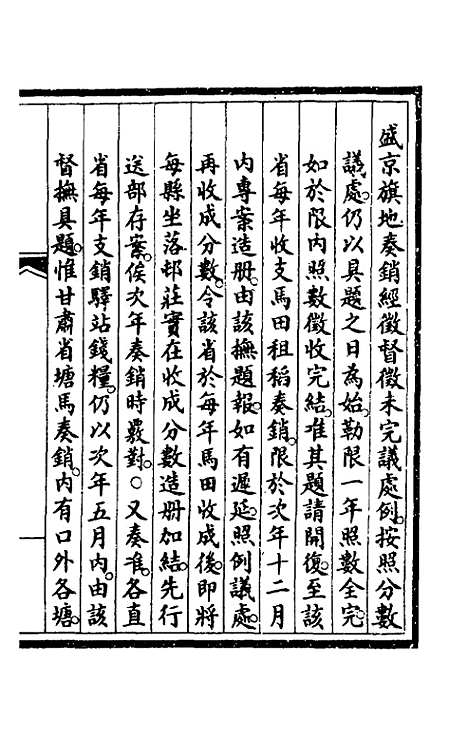 盛京旗地奏銷經徵督徵未完議處例。按照分數
議處。仍以具題之日為始。勒限一年照數全完。
如於限內照數徵收完結。准其題請開復。至該
省每年收支馬田租稻奏銷。限於次年十二月
內專案造册。由該撫題報。如有遲延。照例議處。
再收成分數。令該省於每年馬田收成後。即將
每縣坐落邨莊實在收成分數造册加結。先行
送部存案。俟次年奏銷時覈對。○又奏准。各直
省每年支銷驛站錢糧。仍以次年五月內。由該
督撫具題。惟甘肅省塘馬奏銷。內有口外各塘。